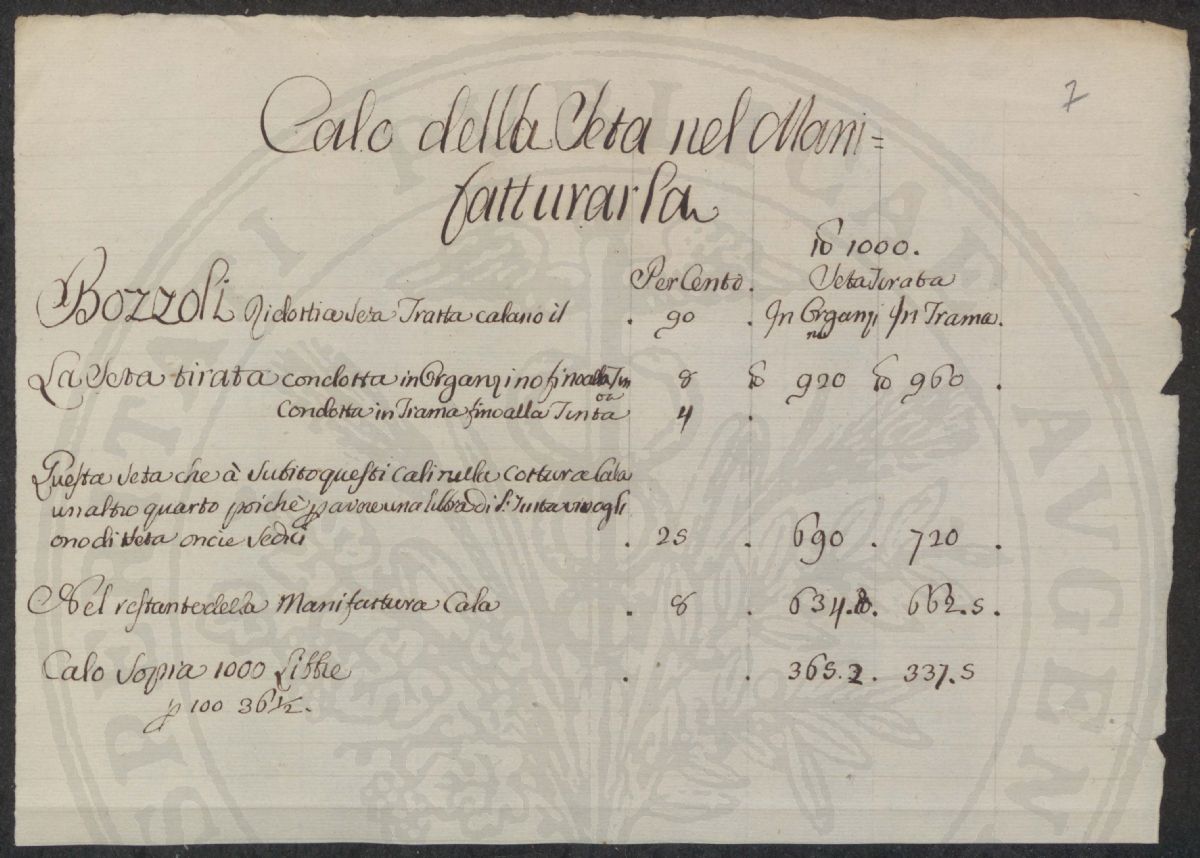 7
Calo della Seta nel Mani=
fatturarla
℔ 1000.
Per Cento. Seta Tirata
Bozzoli Ridotti a Seta Tratta calano il . 90 . In Organzi In Trama.
no
La Seta tirata condotta in Organzino fino alla Tin 8 ℔ 920 ℔ 960 .
ta
Condotta in Trama fino alla Tinta 4 .
Questa Seta che à subito questi cali nella Cottura Cala
un altro quarto poichè p avere una libbra di S. Tinta vi vogli
ono di Seta oncie sedici . 25 . 690 . 720 .
Nel restante della Manifattura Cala . 8 . 634.8. 662.5 .
Calo sopra 1000 Libbre . . 365.2 . 337.5
p 100 36½.